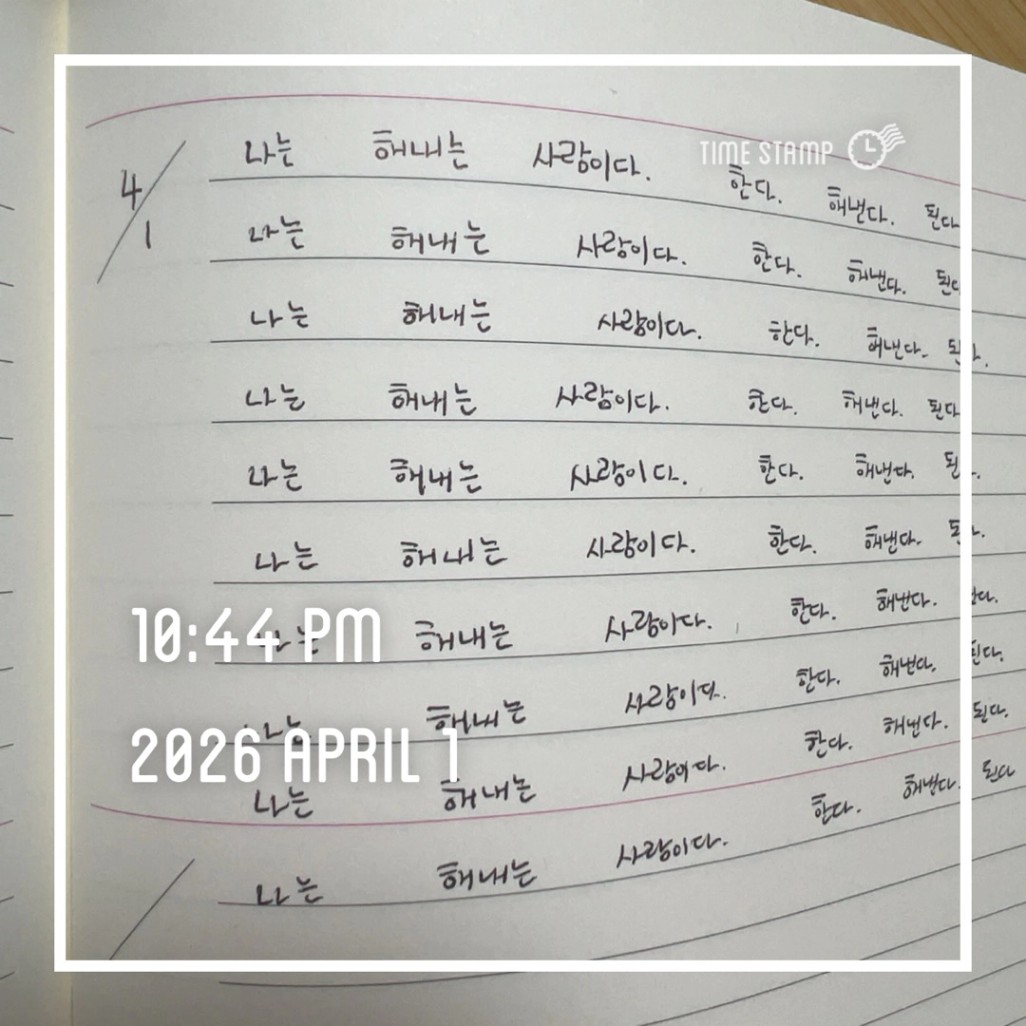 TIME STAMP
4/1
나는 해내는 사람이다. 한다. 해낸다. 된다
나는 해내는 사람이다. 한다. 해낸다. 된다
나는 해내는 사람이다. 한다. 해낸다. 된다.
나는 해내는 사람이다. 한다. 해낸다. 된다
나는 해내는 사람이다. 한다. 해낸다. 된다.
나는 해내는 사람이다. 한다. 해낸다. 된다.
나는 해내는 사람이다. 한다. 해낸다. 된다.
나는 해내는 사람이다. 한다. 해낸다. 된다.
나는 해내는 사람이다. 한다. 해낸다. 된다.
나는 해내는 사람이다. 한다. 해낸다. 된다
10:44 PM
2026 APRIL 1